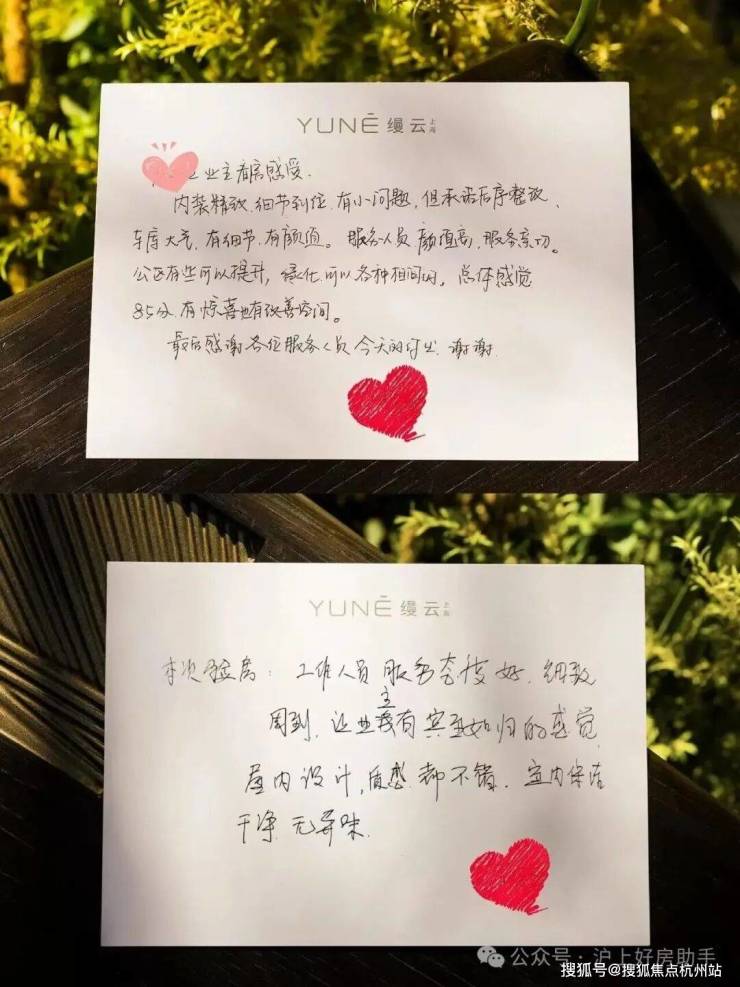 YUNĒ 缦云 上海
业主看房感受.
内装精致.细节到位.有小问题,但承诺后序整改、
车库大气,有细节.有颜值。服务人员颜值高,服务亲切。
公区有些可以提升,绿化可以各种相间的。总体感觉
85分.有惊喜也有改善空间。
最后感谢各位服务人员今天的付出.谢谢.
YUNĒ 缦云 上海
本次验房:工作人员服务态度好.细致
周到,让业主有宾至如归的感觉
屋内设计,质感都不错.室内保洁
干净.无异味.
公众号·沪上好房助手
搜狐号@搜狐焦点杭州站